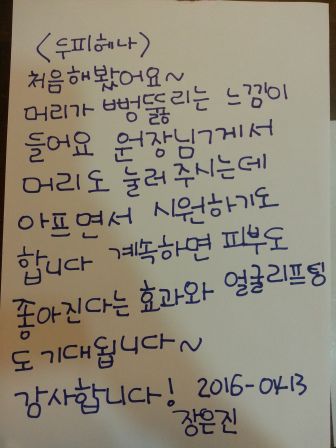 <두피헤나>
처음해봤어요~
머리가 뻥뚫리는 느낌이
들어요 원장님께서
머리도 눌러주시는데
아프면서 시원하기도
합니다 계속하면 피부도
좋아진다는 효과와 얼굴리프팅
도 기대됩니다~
감사합니다! 2016-04.13
장은진